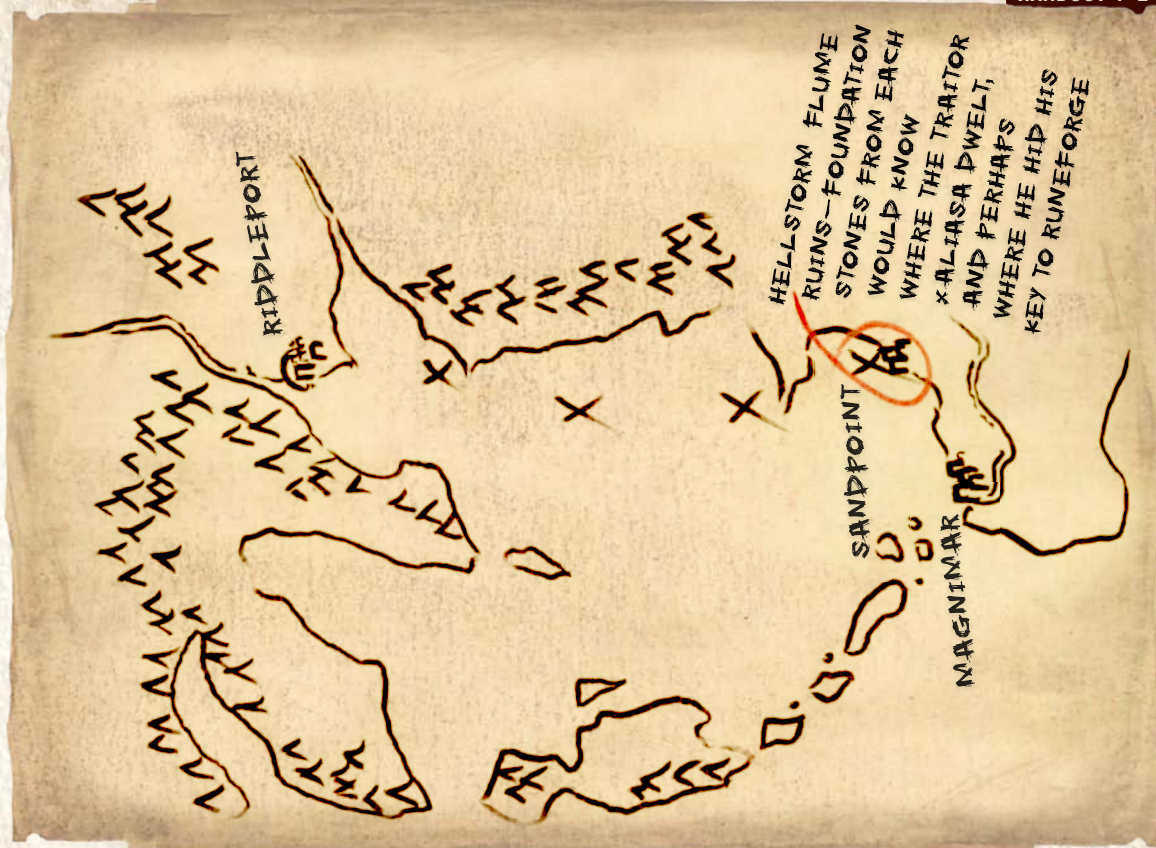 RIDDLEPORT
HELLSTORM FLUME
RUINS—FOUNDATION
STONES FROM EACH
WOULD KNOW
WHERE THE TRAITOR
XALIASA DWELT,
AND PERHAPS
WHERE HE HID HIS
KEY TO RUNEFORGE
SANDPOINT
MAGNIMAR